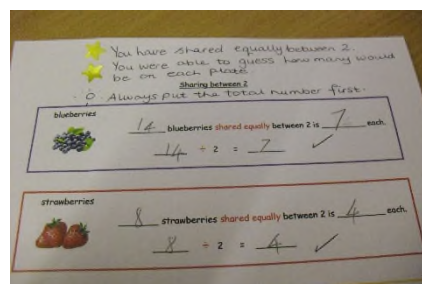 You have shared equally between 2.
You were able to guess how many would
be on each plate.
Sharing between 2
Always put the total number first.
blueberries
14 blueberries shared equally between 2 is 7 each.
14 ÷ 2 = 7 ✓
strawberries
8 strawberries shared equally between 2 is 4 each.
8 ÷ 2 = 4 ✓